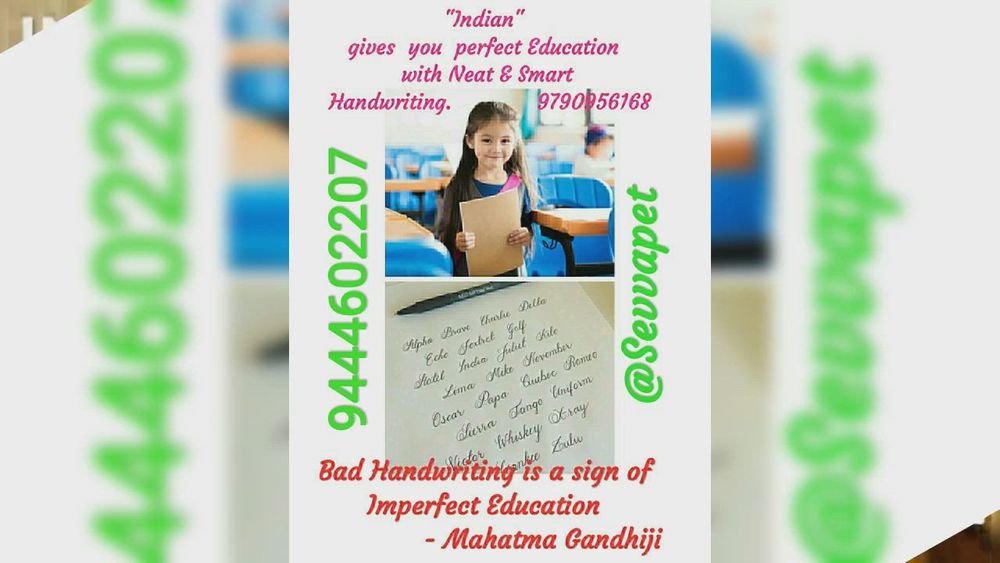 "Indian"
gives you perfect Education
with Neat & Smart
Handwriting. 9790956168
9444602207
@Sevvapet
Alpha Bravo Charlie Delta
Echo Foxtrot Golf
Hotel India Juliet Kilo
Lima Mike November
Oscar Papa Quebec Romeo
Sierra Tango Uniform
Victor Whiskey X-ray
Yankee Zulu
Bad Handwriting is a sign of
Imperfect Education
- Mahatma Gandhiji